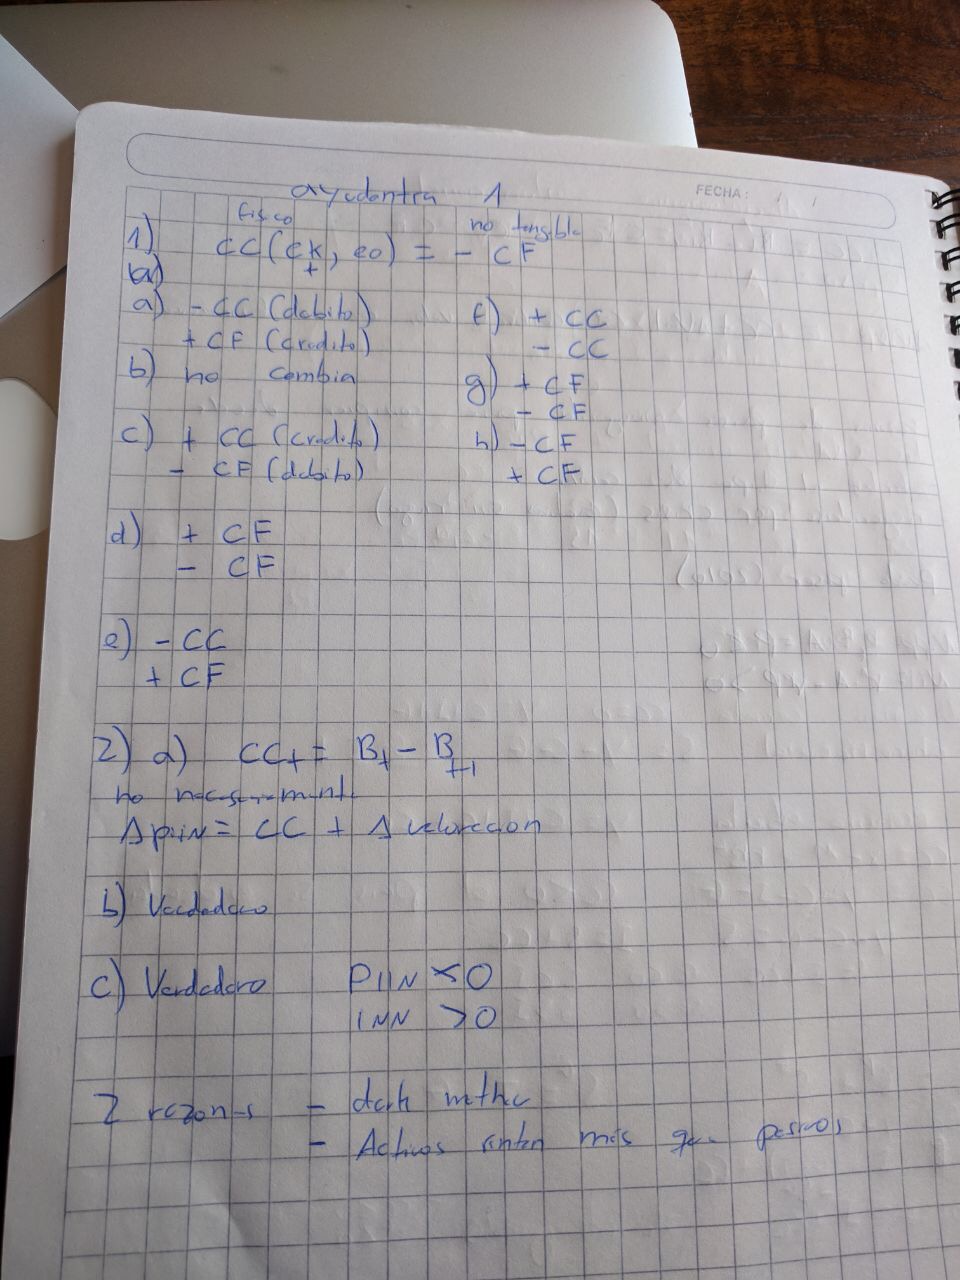 FECHA:
ayudantia 1
fisico no tangible
1) CC (CK, eo) = - CF
+
a) - CC (debito)
+ CF (credito)
b) no cambia
c) + CC (credito)
- CF (debito)
d) + CF
- CF
e) - CC
+ CF
f) + CC
- CC
g) + CF
- CF
h) - CF
+ CF
2) a) CCt = Bt - Bt-1
no necesariamente
Δ PIIN = CC + Δ valoracion
b) Verdadero
c) Verdadero PIIN < 0
INN > 0
2 razones - dark matter
- Activos rinten más que pasivos